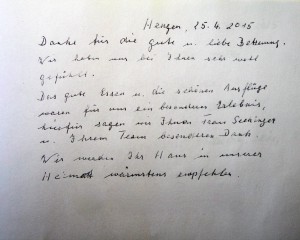 Hengen, 25.4.2015
Danke für die gute u. liebe Betreuung.
Wir haben uns bei Ihnen sehr wohl
gefühlt.
Das gute Essen u. die schönen Ausflüge
waren für uns ein besonderes Erlebnis,
hierfür sagen wir Ihnen Frau
u. Ihrem Team besonderen Dank.
Wir werden Ihr Haus in unserer
Heimat wärmstens empfehlen.